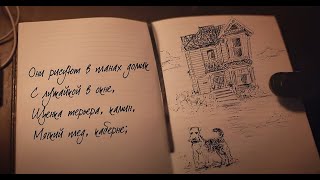 Она рисует в планах домик
С лужайкой в окне,
Щенка терьера, камин,
Мягкий плед, каберне;